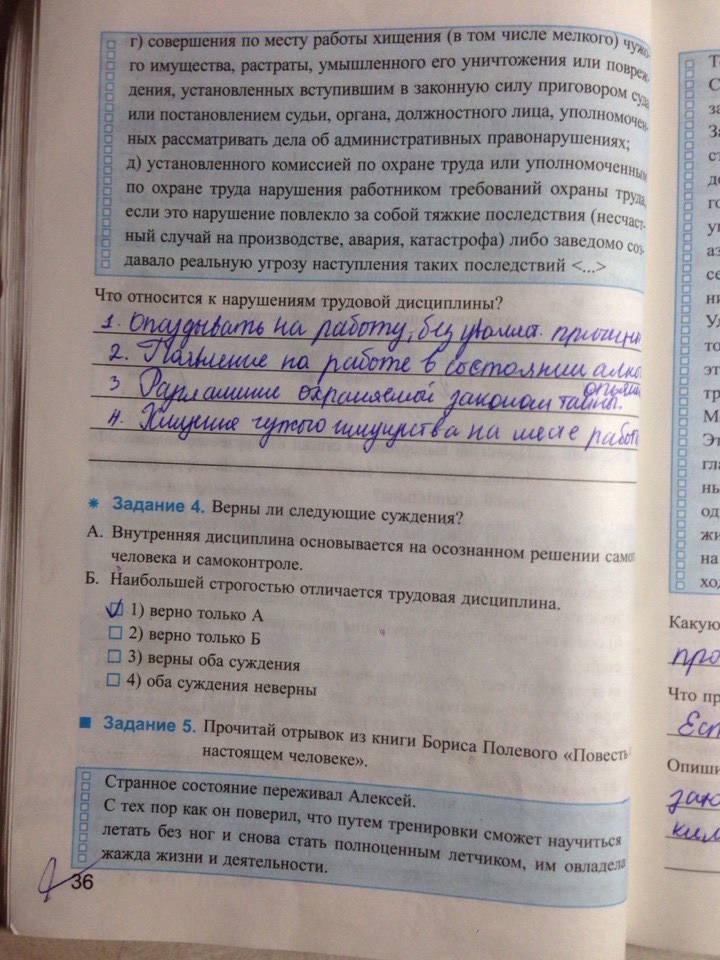 г) совершения по месту работы хищения (в том числе мелкого) чужо-
го имущества, растраты, умышленного его уничтожения или повреж-
дения, установленных вступившим в законную силу приговором суда
или постановлением судьи, органа, должностного лица, уполномочен-
ных рассматривать дела об административных правонарушениях;
д) установленного комиссией по охране труда или уполномоченным
по охране труда нарушения работником требований охраны труда,
если это нарушение повлекло за собой тяжкие последствия (несчаст-
ный случай на производстве, авария, катастрофа) либо заведомо соз-
давало реальную угрозу наступления таких последствий <...>
Что относится к нарушениям трудовой дисциплины?
1. Опаздывать на работу, без
2. на работе в состоянии алко
3 охраняемой законом тайны.
4. Хищения чужого имущества на месте рабо
✷ Задание 4. Верны ли следующие суждения?
А. Внутренняя дисциплина основывается на осознанном решении самог
человека и самоконтроле.
Б. Наибольшей строгостью отличается трудовая дисциплина.
1) верно только А
2) верно только Б
3) верны оба суждения
4) оба суждения неверны
■ Задание 5. Прочитай отрывок из книги Бориса Полевого «Повесть о
настоящем человеке».
Странное состояние переживал Алексей.
С тех пор как он поверил, что путем тренировки сможет научиться
летать без ног и снова стать полноценным летчиком, им овладела
жажда жизни и деятельности.
36
Какую
про
Что пр
Ест
Опиши